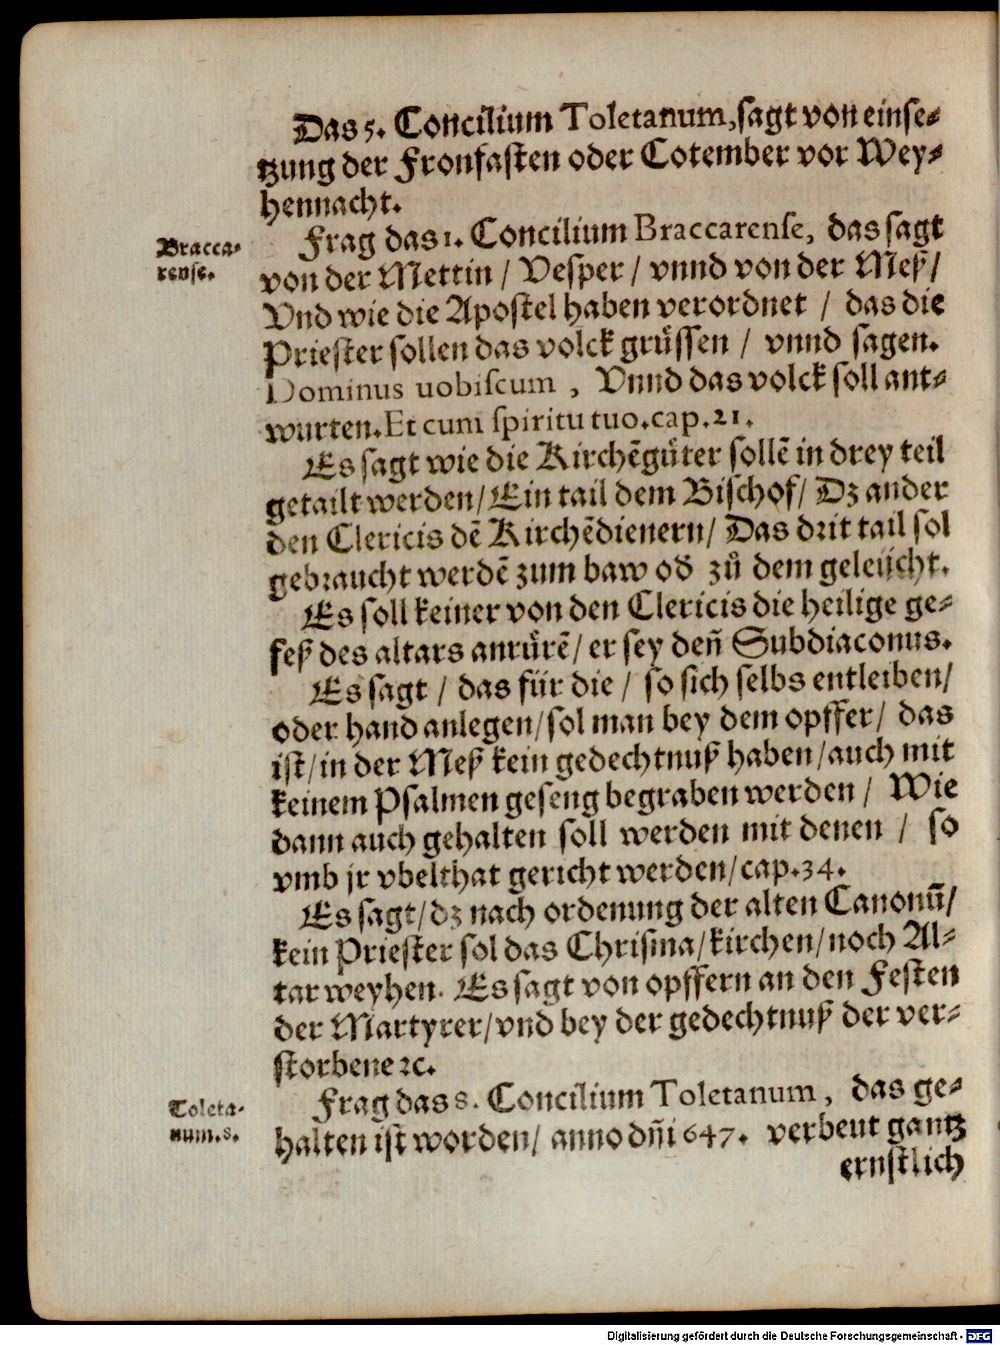 Das 5. Concilium Toletanum, sagt von einse⸗
tzung der Fronfasten oder Cotember vor Wey⸗
hennacht.
Bracca⸗
rense.
Frag das 1. Concilium Braccarense, das sagt
von der Mettin / Vesper / vnnd von der Meß /
Vnd wie die Apostel haben verordnet / das die
Priester sollen das volck gruͤssen / vnnd sagen.
Dominus uobiscum , Vnnd das volck soll ant⸗
wurten. Et cum spiritu tuo. cap. 21.
Es sagt wie die Kirchēguͤter sollē in drey teil
getailt werden / Ein tail dem Bischof / Dz ander
den Clericis dē Kirchēdienern / Das drit tail sol
gebraucht werdē zum baw od̕ zuͦ dem geleücht.
Es soll keiner von den Clericis die heilige ge⸗
feß des altars anruͤrē / er sey den̄ Subdiaconus.
Es sagt / das für die / so sich selbs entleiben /
oder hand anlegen / sol man bey dem opffer / das
ist / in der Meß kein gedechtnuß haben / auch mit
keinem Psalmen geseng begraben werden / Wie
dann auch gehalten soll werden mit denen / so
vmb jr vbelthat gericht werden / cap. 34.
Es sagt / dz nach ordenung der alten Canonū /
kein Priester sol das Chrisma / kirchen / noch Al⸗
tar weyhen. Es sagt von opffern an den Festen
der Martyrer / vnd bey der gedechtnuß der ver⸗
storbene ꝛc.
Toleta⸗
num. 8.
Frag das 8. Concilium Toletanum, das ge⸗
halten ist worden / anno dn̄i 647. verbeut gantz
ernstlich
Digitalisierung gefördert durch die Deutsche Forschungsgemeinschaft - DFG